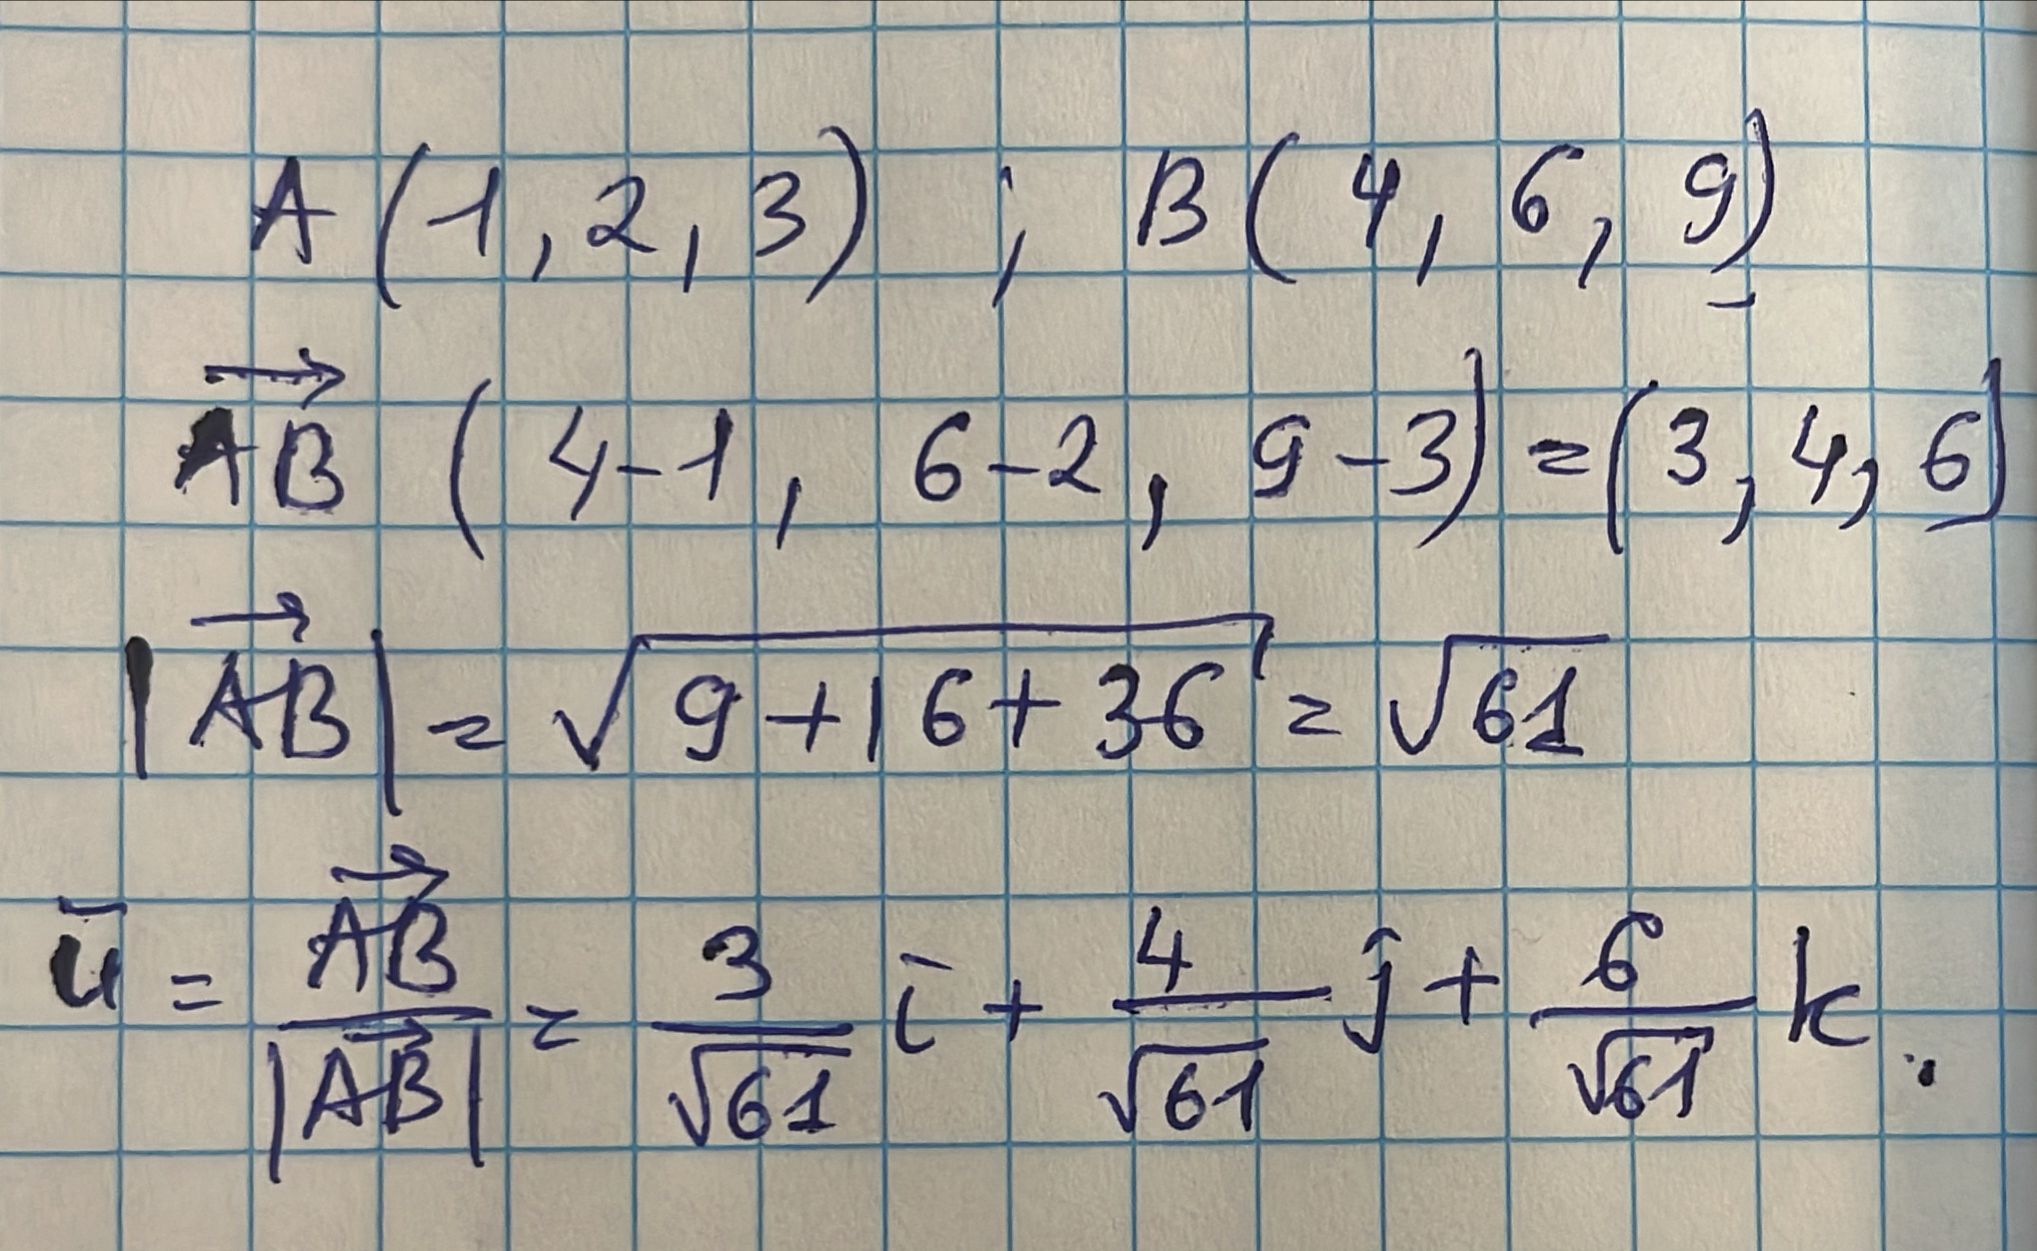 A(1,2,3) ; B(4,6,9)
$\overrightarrow{AB}$ (4-1, 6-2, 9-3) = (3,4,6)
$|\overrightarrow{AB}| = \sqrt{9+16+36} = \sqrt{61}$
$\bar{u} = \frac{\overrightarrow{AB}}{|\overrightarrow{AB}|} = \frac{3}{\sqrt{61}} i + \frac{4}{\sqrt{61}} j + \frac{6}{\sqrt{61}} k.$